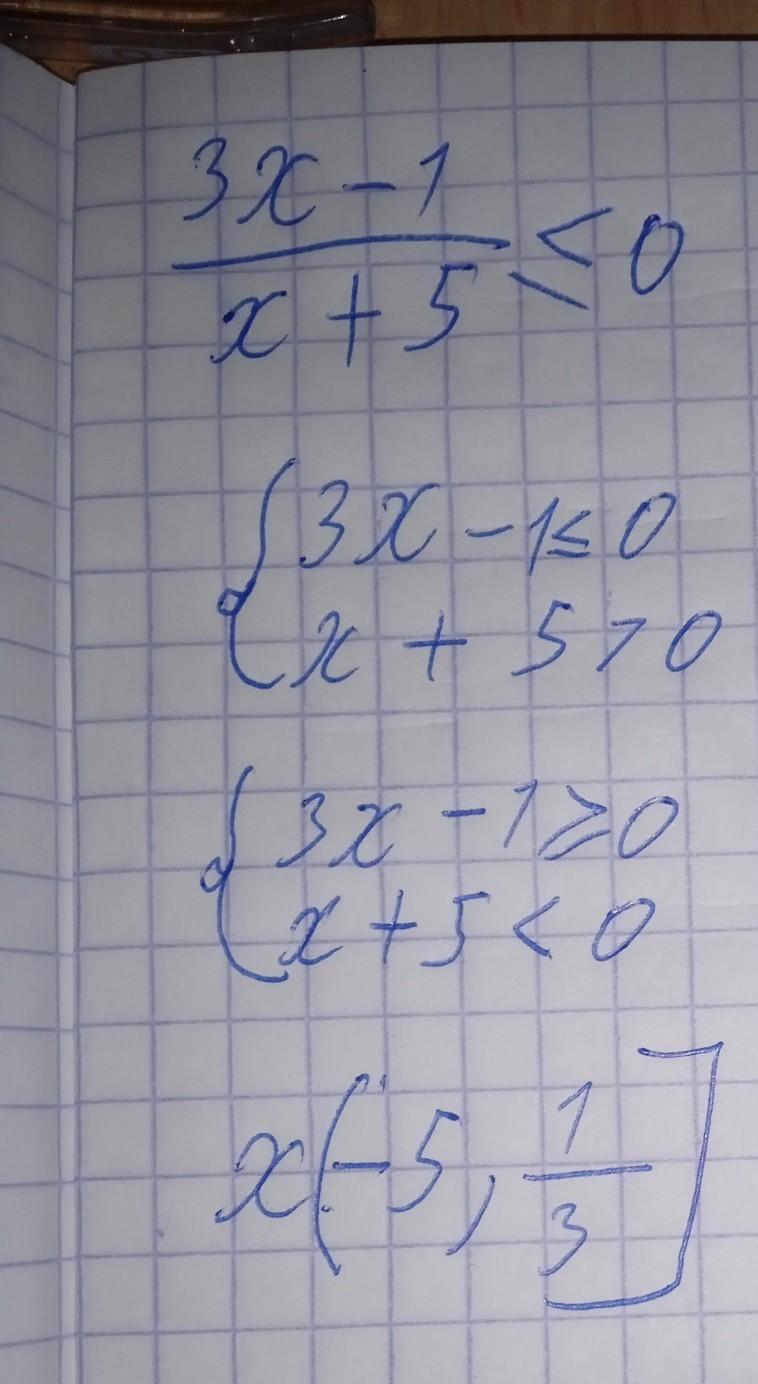 3x - 1
x + 5 ≤ 0
{ 3x - 1 ≤ 0
x + 5 > 0
{ 3x - 1 ≥ 0
x + 5 < 0
x(-5, 1/3]